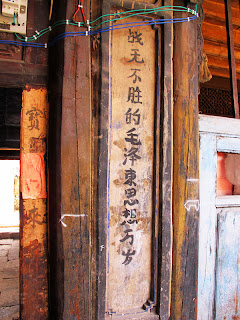 战无不胜的毛泽东思想万岁